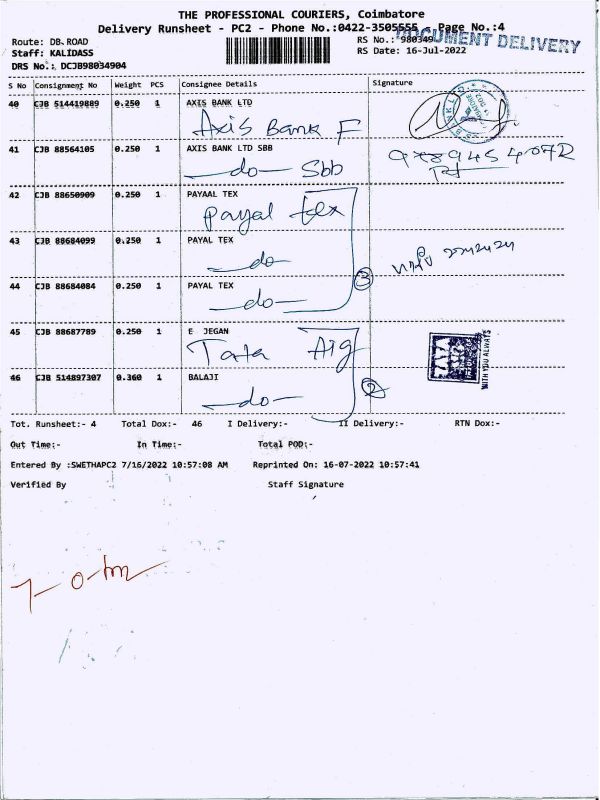 THE PROFESSIONAL COURIERS, Coimbatore
Delivery Runsheet - PC2 - Phone No.:0422-3505555 Page No.:4
DOCUMENT DELIVERY
Route: DB.ROAD
RS No.: 980349
Staff: KALIDASS
RS Date: 16-Jul-2022
DRS No.: DCJB98034904
S No Consignment No Weight PCS Consignee Details Signature
40 CJB 514419889 0.250 1 AXIS BANK LTD
Axis Bank F
41 CJB 88564105 0.250 1 AXIS BANK LTD SBB
do Sbb
42 CJB 88650909 0.250 1 PAYAAL TEX
Payal tex
43 CJB 88684099 0.250 1 PAYAL TEX
do
44 CJB 88684084 0.250 1 PAYAL TEX
do
3
45 CJB 88687789 0.250 1 E JEGAN
Tata Aig
WITH YOU ALWAYS
46 CJB 514897307 0.360 1 BALAJI
do
2
Tot. Runsheet:- 4 Total Dox:- 46 I Delivery:- II Delivery:- RTN Dox:-
Out Time:- In Time:- Total POD:-
Entered By :SWETHAPC2 7/16/2022 10:57:08 AM Reprinted On: 16-07-2022 10:57:41
Verified By Staff Signature